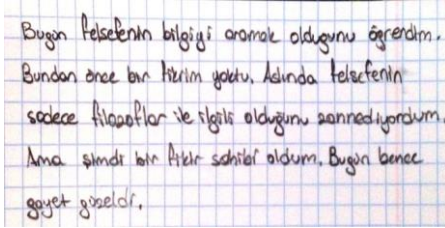 Bugün felsefenin bilgiyi aramak olduğunu öğrendim.
Bundan önce bir fikrim yoktu. Aslında felsefenin
sadece filozoflar ile ilgili olduğunu zannediyordum.
Ama şimdi bir fikir sahibi oldum. Bugün bence
gayet güzeldi.